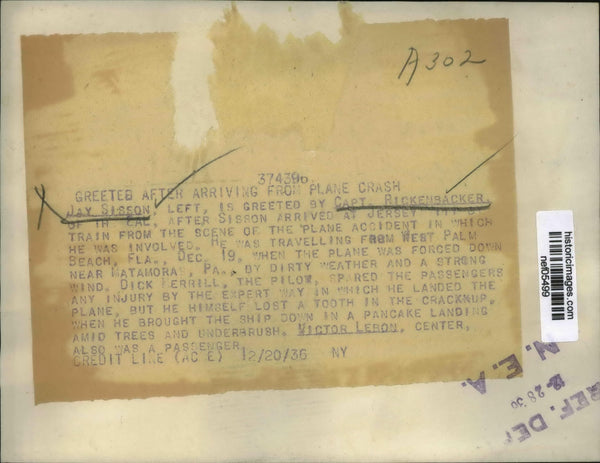 A302
374396
GREETED AFTER ARRIVING FROM PLANE CRASH
JAY SISSON, LEFT, IS GREETED BY CAPT. RICKENBACKER
AFTER SISSON ARRIVED AT JERSEY BY
TRAIN FROM THE SCENE OF THE PLANE ACCIDENT IN WHICH
HE WAS INVOLVED. HE WAS TRAVELLING FROM WEST PALM
BEACH, FLA., DEC. 19, WHEN THE PLANE WAS FORCED DOWN
NEAR MATAMORAS, PA., BY DIRTY WEATHER AND A STRONG
WIND. DICK MERRILL, THE PILOT, SPARED THE PASSENGERS
ANY INJURY BY THE EXPERT WAY IN WHICH HE LANDED THE
PLANE, BUT HE HIMSELF LOST A TOOTH IN THE CRACKNUP,
WHEN HE BROUGHT THE SHIP DOWN IN A PANCAKE LANDING
AMID TREES AND UNDERBRUSH. VICTOR LEBON, CENTER,
ALSO WAS A PASSENGER
CREDIT LINE (ACME) 12/20/36 NY
historicimages.com
nef05499
N. E. A.
12-28 36
REF. DEP